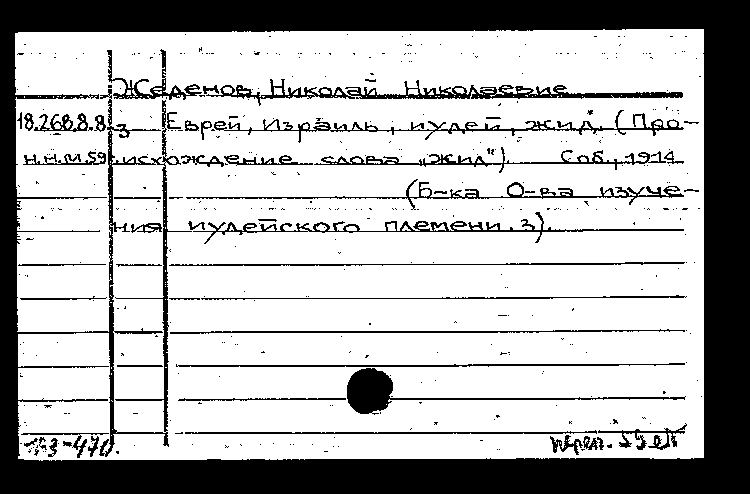 Жеденов, Николай Николаевие
18.268.8.8. 3 Еврей, Израиль, иудей, жид. (Про-
исхождение слова „жид"). Спб., 1914
(Б-ка О-ва изуче-
ния иудейского племени. 3).
3-470.